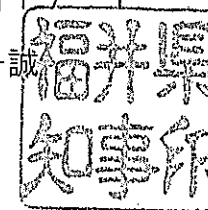 誠
福井県
知事印